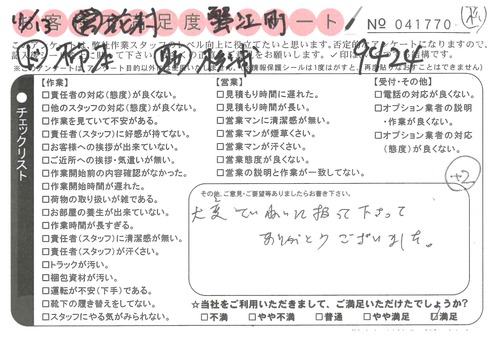 足度
ート
蟹江町
No 041770
このアンケートは、弊社作業スタッフのレベル向上に役立てたいと思います。否定的なアンケートになりますので、
お願いします。
【作業】
□責任者の対応(態度)が良くない。
□他のスタッフの対応(態度)が良くない。
□作業を見ていて不安がある。
□責任者(スタッフ)に好感が持てない。
□お客様への挨拶が出来ていない。
□ご近所への挨拶・気遣いが無い。
□作業開始前の内容確認がなかった。
□作業開始時間が遅れた。
□荷物の取り扱いが雑である。
□お部屋の養生が出来ていない。
□作業時間が長すぎる。
□責任者(スタッフ)に清潔感が無い。
□責任者(スタッフ)が汗くさい。
□トラックが汚い。
□梱包資材が汚い。
□運転が不安(下手)である。
□靴下の履き替えをしてない。
□スタッフにやる気がみられない。
【営業】
□見積もり時間に遅れた。
□見積もり時間が長い。
□営業マンに清潔感が無い。
□営業マンが煙草くさい。
□営業マンが汗くさい。
□営業態度が良くない。
□営業の説明と作業が一致してない。
【受付・その他】
□電話の対応が良くない。
□オプション業者の説明
・作業が良くない。
□オプション業者の対応
(態度)が良くない。
チェックリスト
+2
その他、ご意見・ご要望等ありましたらお書き下さい。
大変ていねいに扱って下さって
ありがとうございました。
☆当社をご利用いただきまして、ご満足いただけたでしょうか?
□不満 □やや不満 □普通 □やや満足 ☑満足